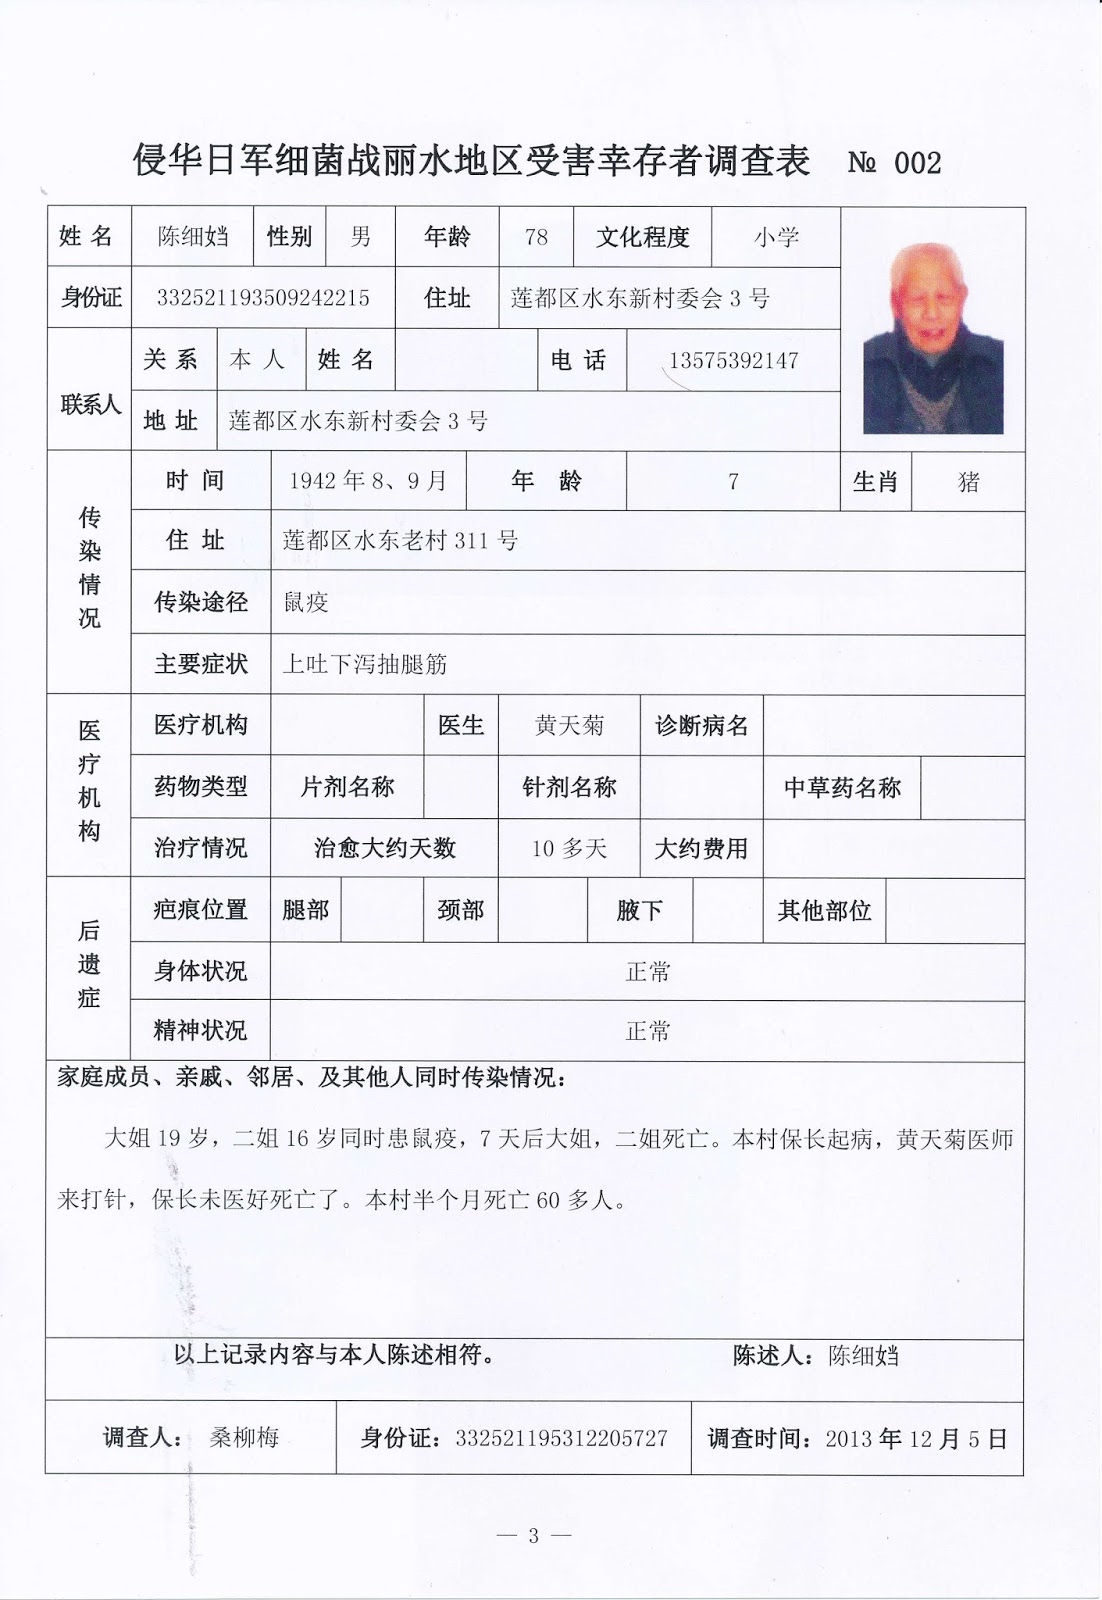 侵华日军细菌战丽水地区受害幸存者调查表 № 002
姓 名 陈细娏 性别 男 年龄 78 文化程度 小学
身份证 332521193509242215 住址 莲都区水东新村委会 3 号
联系人 关 系 本 人 姓 名 电 话 13575392147
地 址 莲都区水东新村委会 3 号
传染情况 时 间 1942 年 8、9 月 年 龄 7 生肖 猪
住 址 莲都区水东老村 311 号
传染途径 鼠疫
主要症状 上吐下泻抽腿筋
医疗机构 医疗机构 医生 黄天菊 诊断病名
药物类型 片剂名称 针剂名称 中草药名称
治疗情况 治愈大约天数 10 多天 大约费用
后遗症 疤痕位置 腿部 颈部 腋下 其他部位
身体状况 正常
精神状况 正常
家庭成员、亲戚、邻居、及其他人同时传染情况：
大姐 19 岁，二姐 16 岁同时患鼠疫，7 天后大姐，二姐死亡。本村保长起病，黄天菊医师
来打针，保长未医好死亡了。本村半个月死亡 60 多人。
以上记录内容与本人陈述相符。 陈述人：陈细娏
调查人： 桑柳梅 身份证：332521195312205727 调查时间：2013 年 12 月 5 日
— 3 —